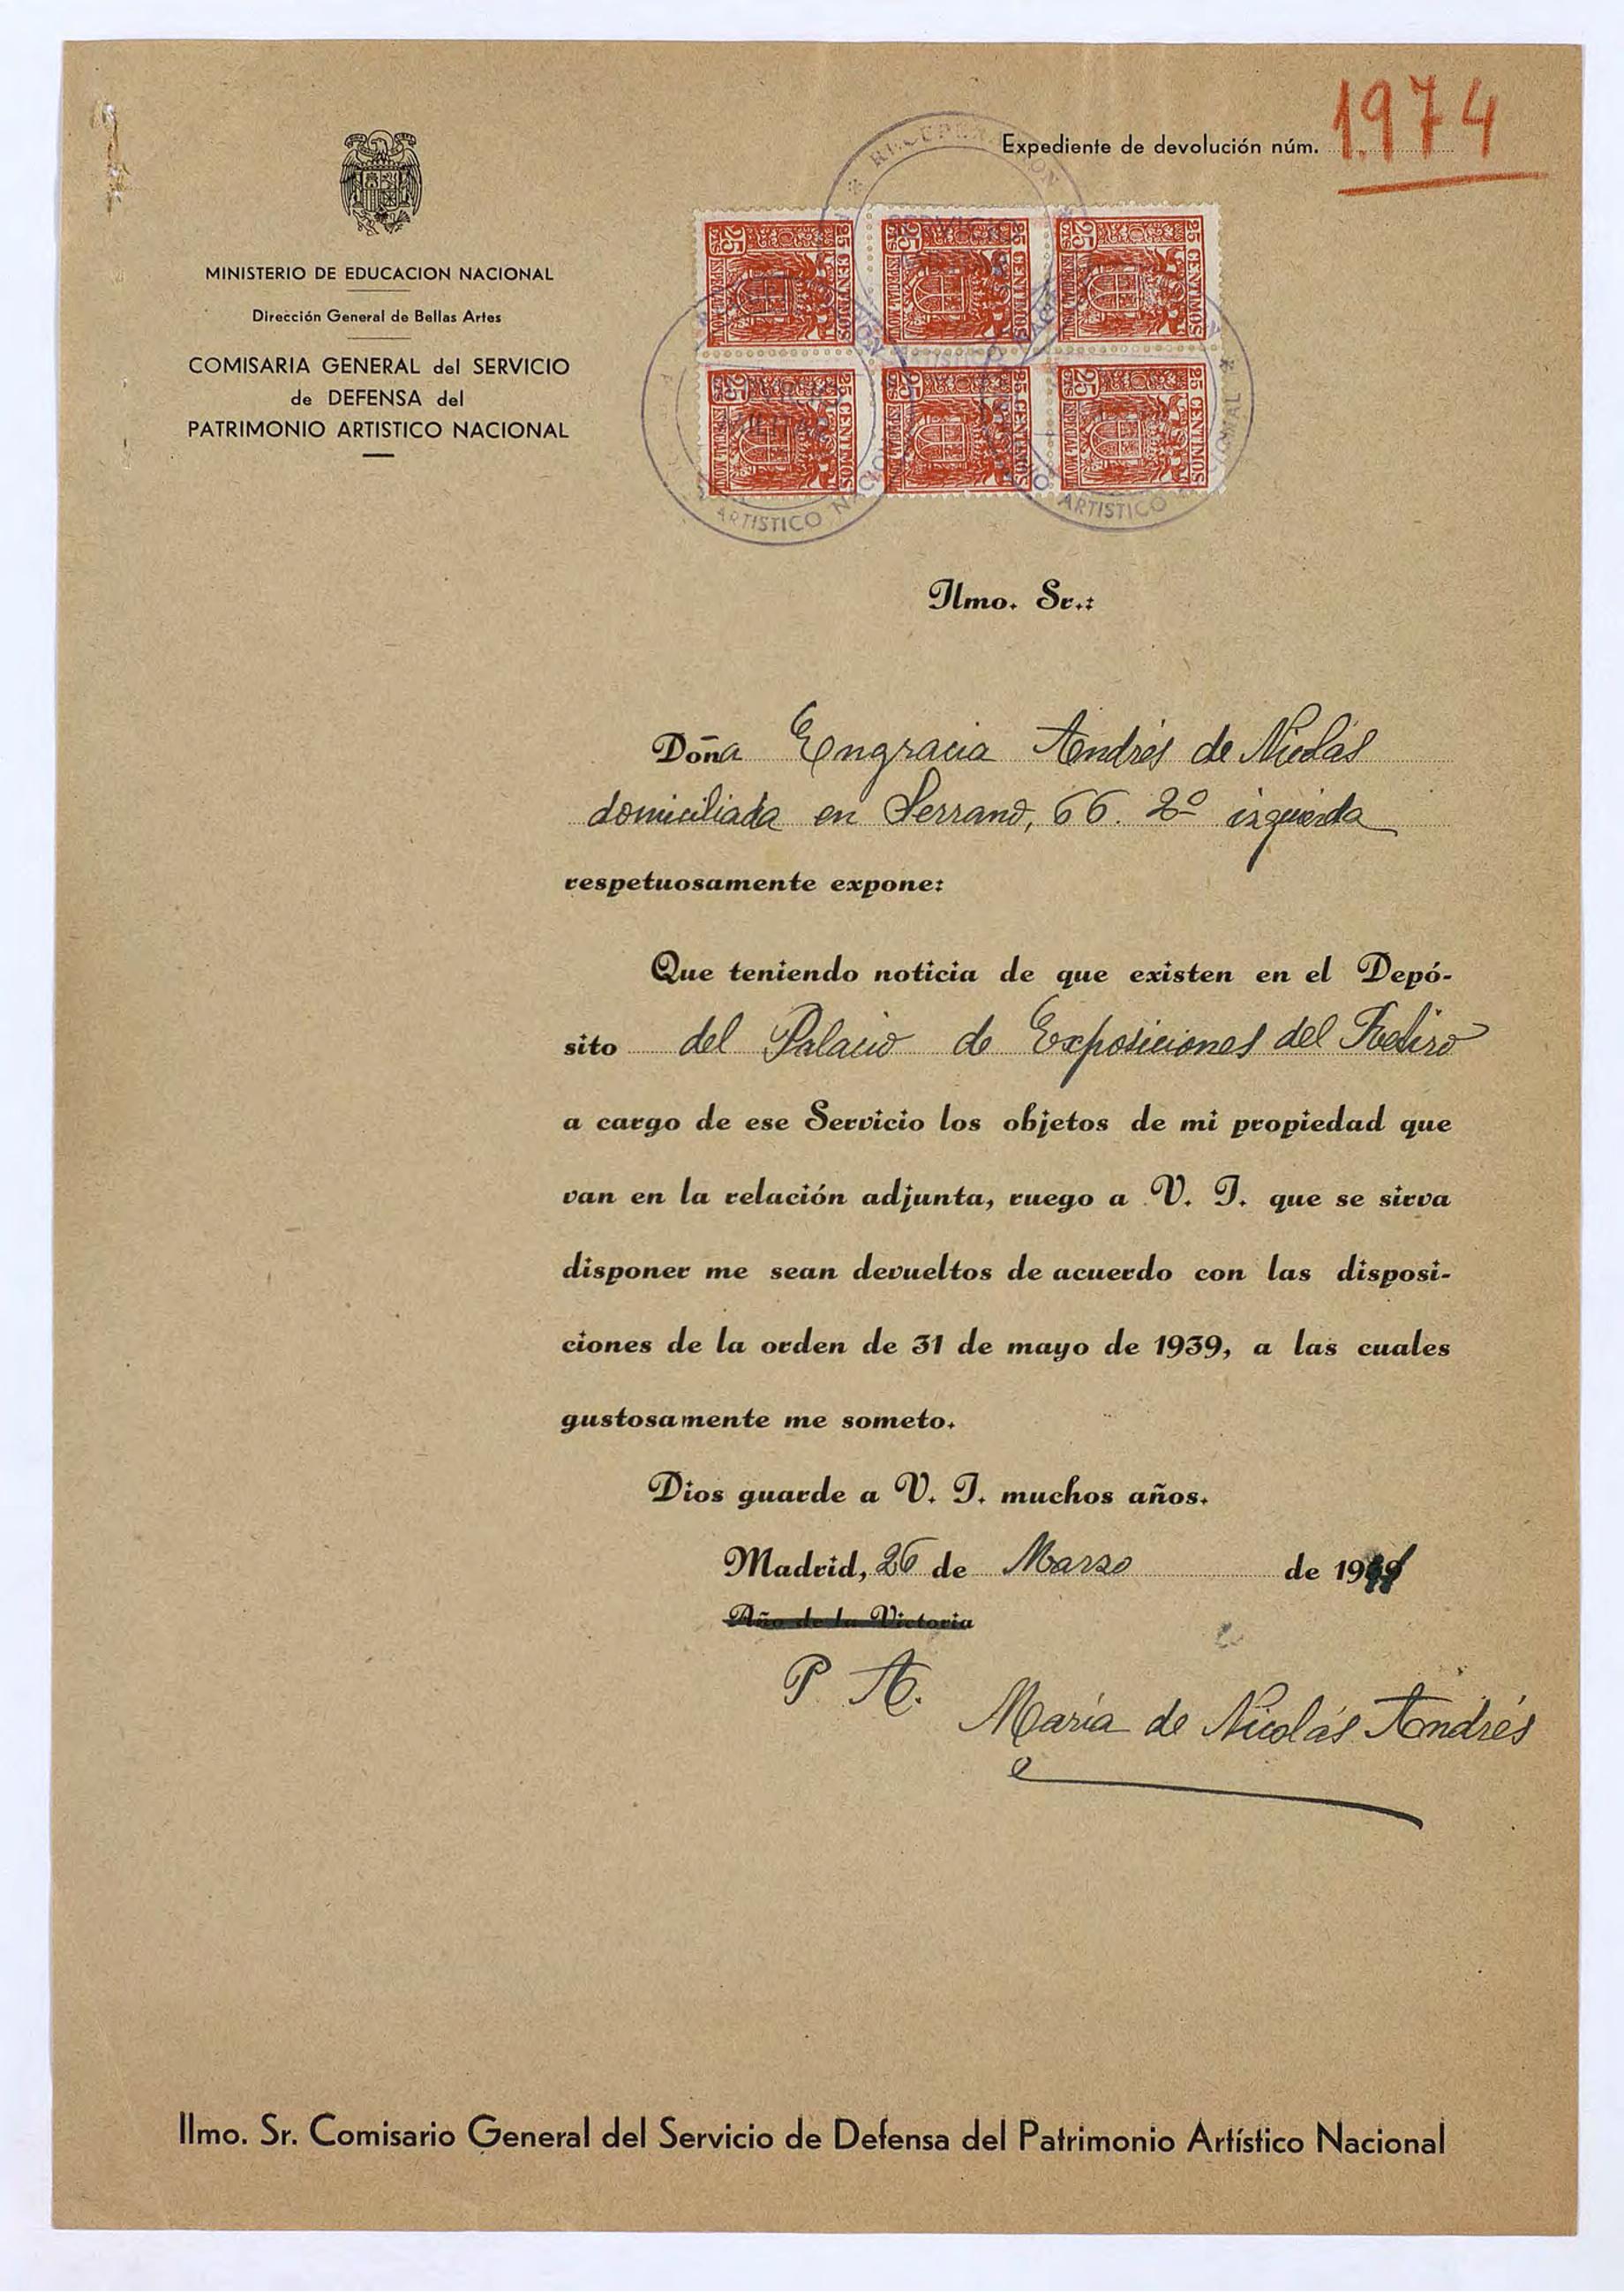 Expediente de devolución núm. 1.974
MINISTERIO DE EDUCACION NACIONAL
Dirección General de Bellas Artes
COMISARIA GENERAL del SERVICIO
de DEFENSA del
PATRIMONIO ARTISTICO NACIONAL
25 CENTIMOS 25 CENTIMOS 25 CENTIMOS
25 CENTIMOS 25 CENTIMOS 25 CENTIMOS
ARTISTICO NACIONAL
ARTISTICO NACIONAL
Ilmo. Sr.:
Doña Engracia Andrés de Nicolás
domiciliada en Serrano, 66. 2º izquierda
respetuosamente expone:
Que teniendo noticia de que existen en el Depó-
sito del Palacio de Exposiciones del Retiro
a cargo de ese Servicio los objetos de mi propiedad que
van en la relación adjunta, ruego a V. I. que se sirva
disponer me sean devueltos de acuerdo con las disposi-
ciones de la orden de 31 de mayo de 1939, a las cuales
gustosamente me someto.
Dios guarde a V. I. muchos años.
Madrid, 26 de Marzo de 19
Año de la Victoria
P. A.
María de Nicolás Andrés
Ilmo. Sr. Comisario General del Servicio de Defensa del Patrimonio Artístico Nacional